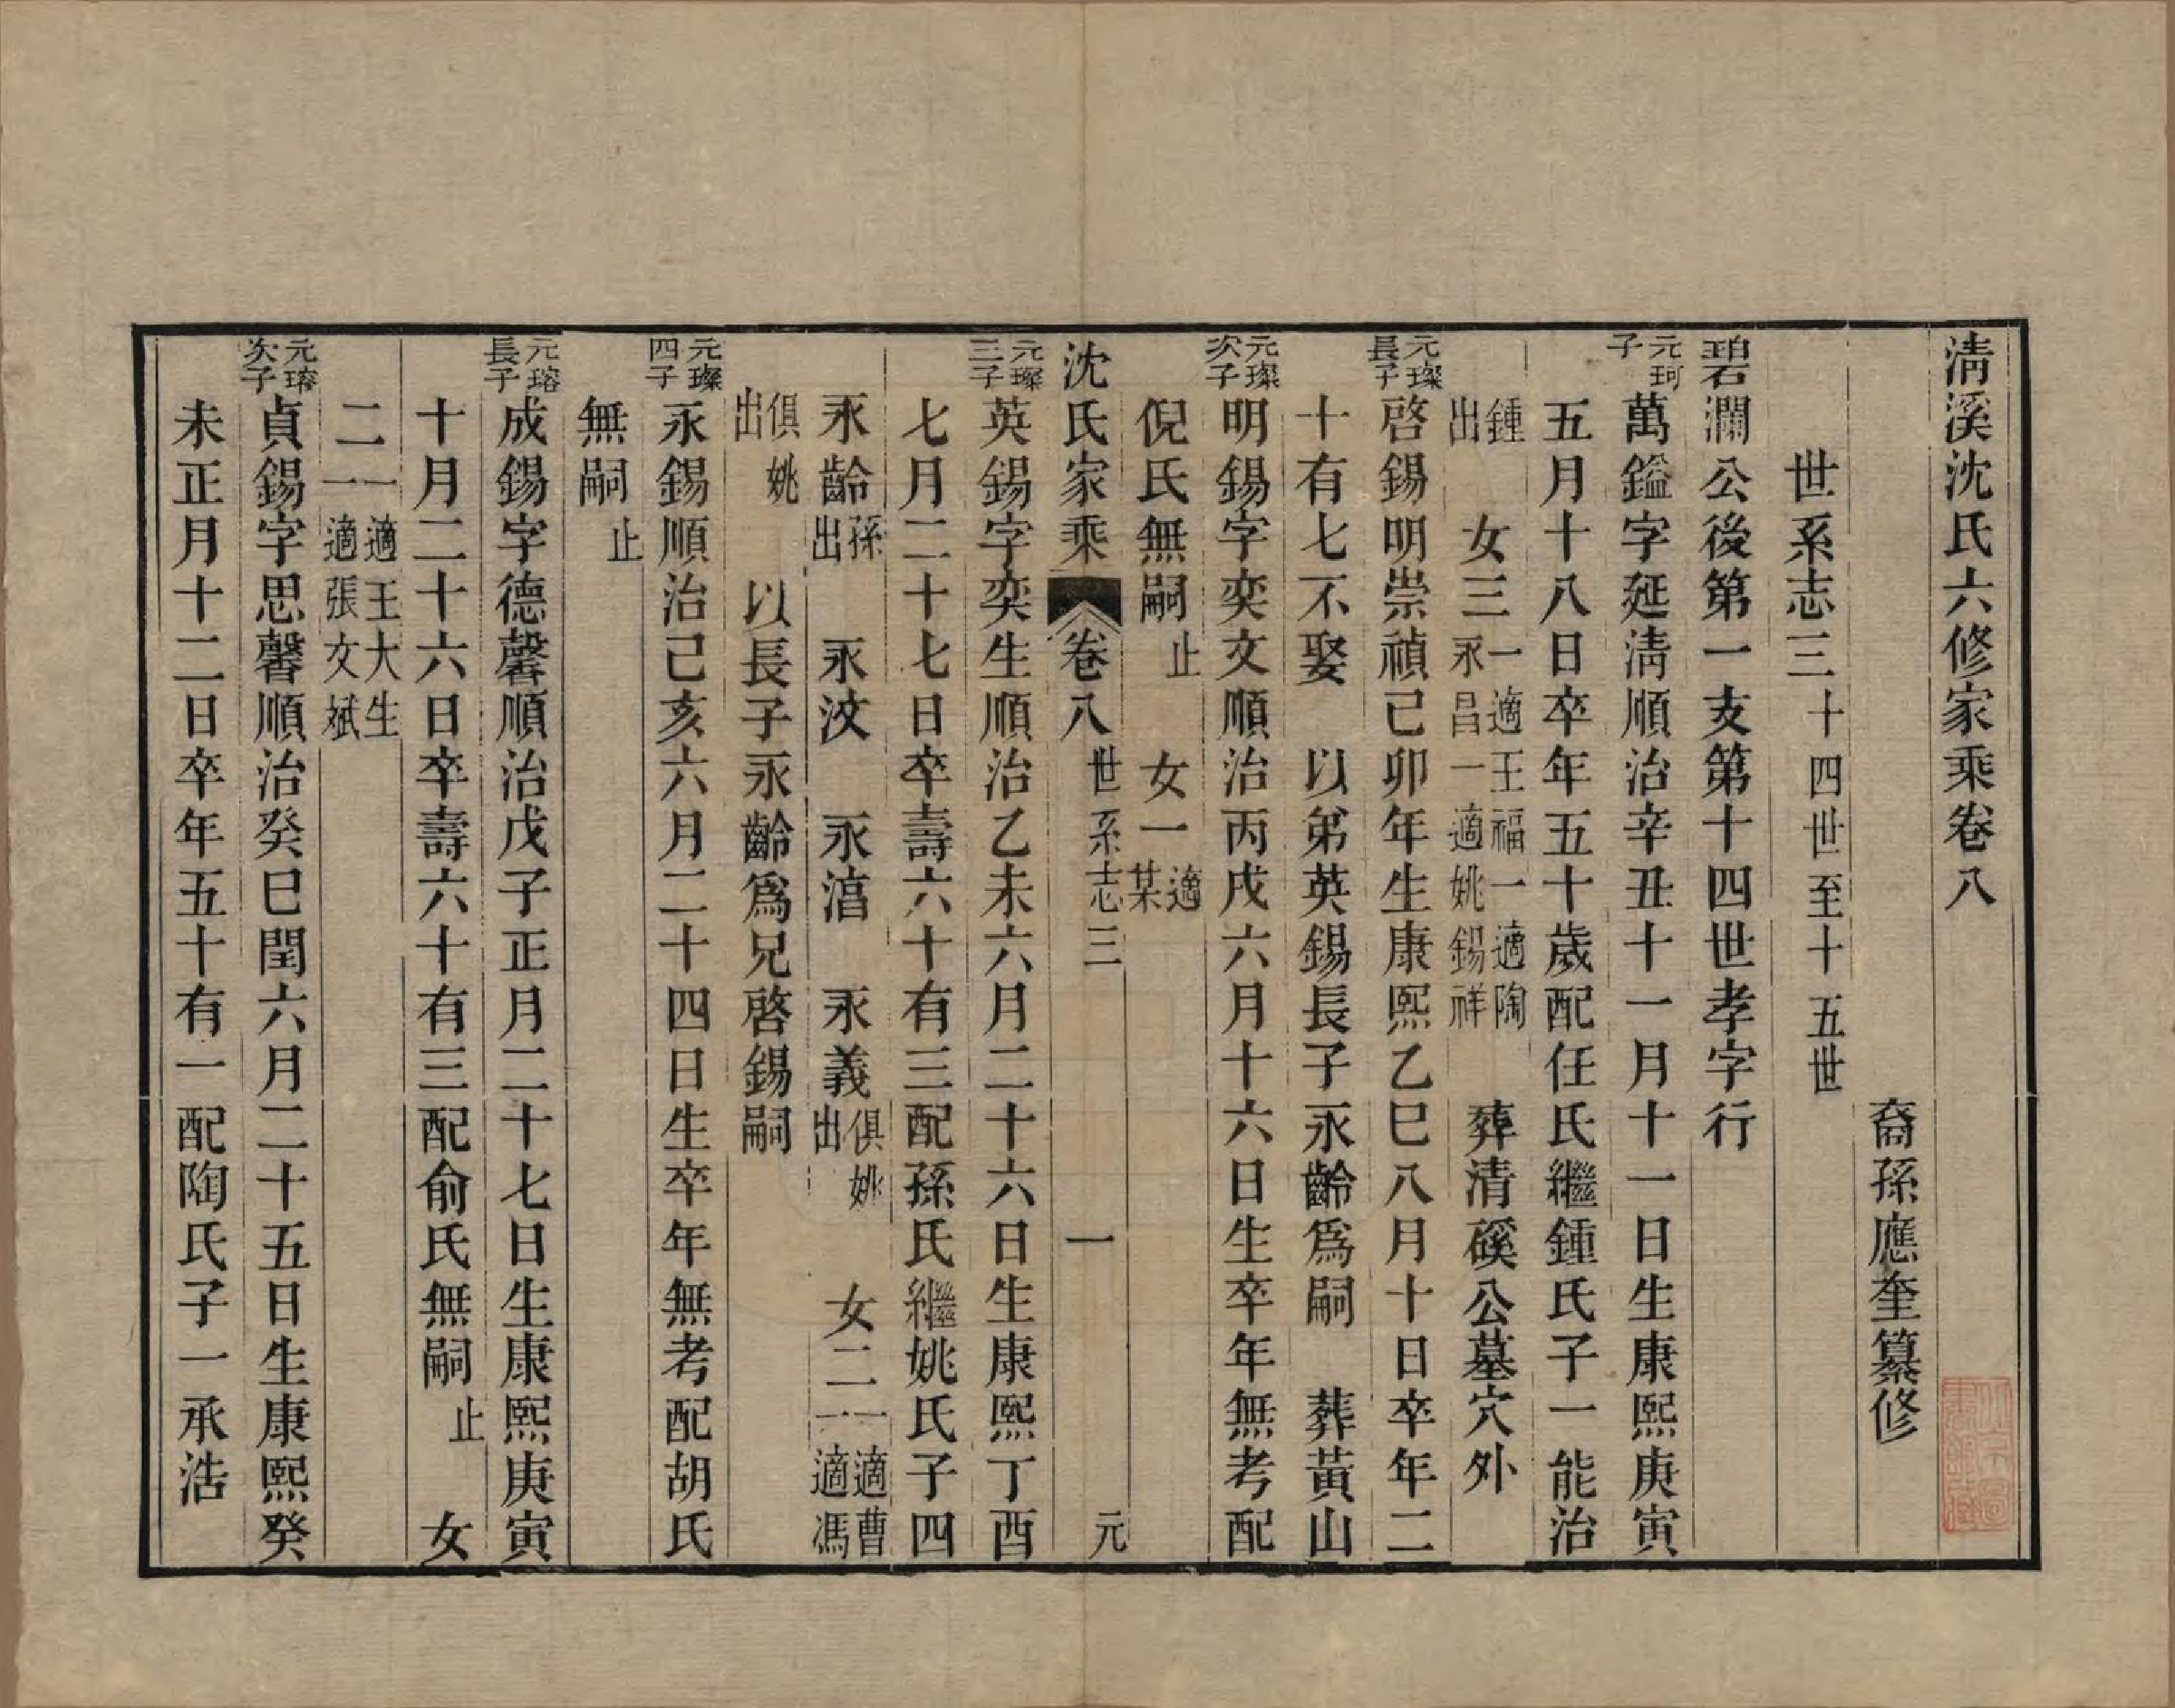 淸溪沈氏六修家乘卷八
裔孫應奎纂修
世系志三十四世至十五世
碧瀾公後第一支第十四世孝字行
元珂子 萬鎰字延淸順治辛丑十一月十一日生康熙庚寅
五月十八日卒年五十歲配任氏繼鍾氏子一能治
鍾出 女三一適王福一適陶永昌一適姚錫祥 葬清磎公墓穴外
元璨長子 啓錫明崇禎己卯年生康熙乙巳八月十日卒年二
十有七不娶 以弟英錫長子永齡爲嗣 葬黃山
元璨次子 明錫字奕文順治丙戌六月十六日生卒年無考配
倪氏無嗣止 女一適某
沈氏家乘 卷八 世系志三 一 元
元璨三子 英錫字奕生順治乙未六月二十六日生康熙丁酉
七月二十七日卒壽六十有三配孫氏繼姚氏子四
永齡孫出 永汶 永湻 永義俱姚出 女二一適曹一適馮
俱姚出 以長子永齡爲兄啓錫嗣
元璨四子 永錫順治己亥六月二十四日生卒年無考配胡氏
無嗣止
元瑢長子 成錫字德馨順治戊子正月二十七日生康熙庚寅
十月二十六日卒壽六十有三配俞氏無嗣止 女
二一適王大生一適張文斌
元瑢次子 貞錫字思馨順治癸巳閏六月二十五日生康熙癸
未正月十二日卒年五十有一配陶氏子一承浩